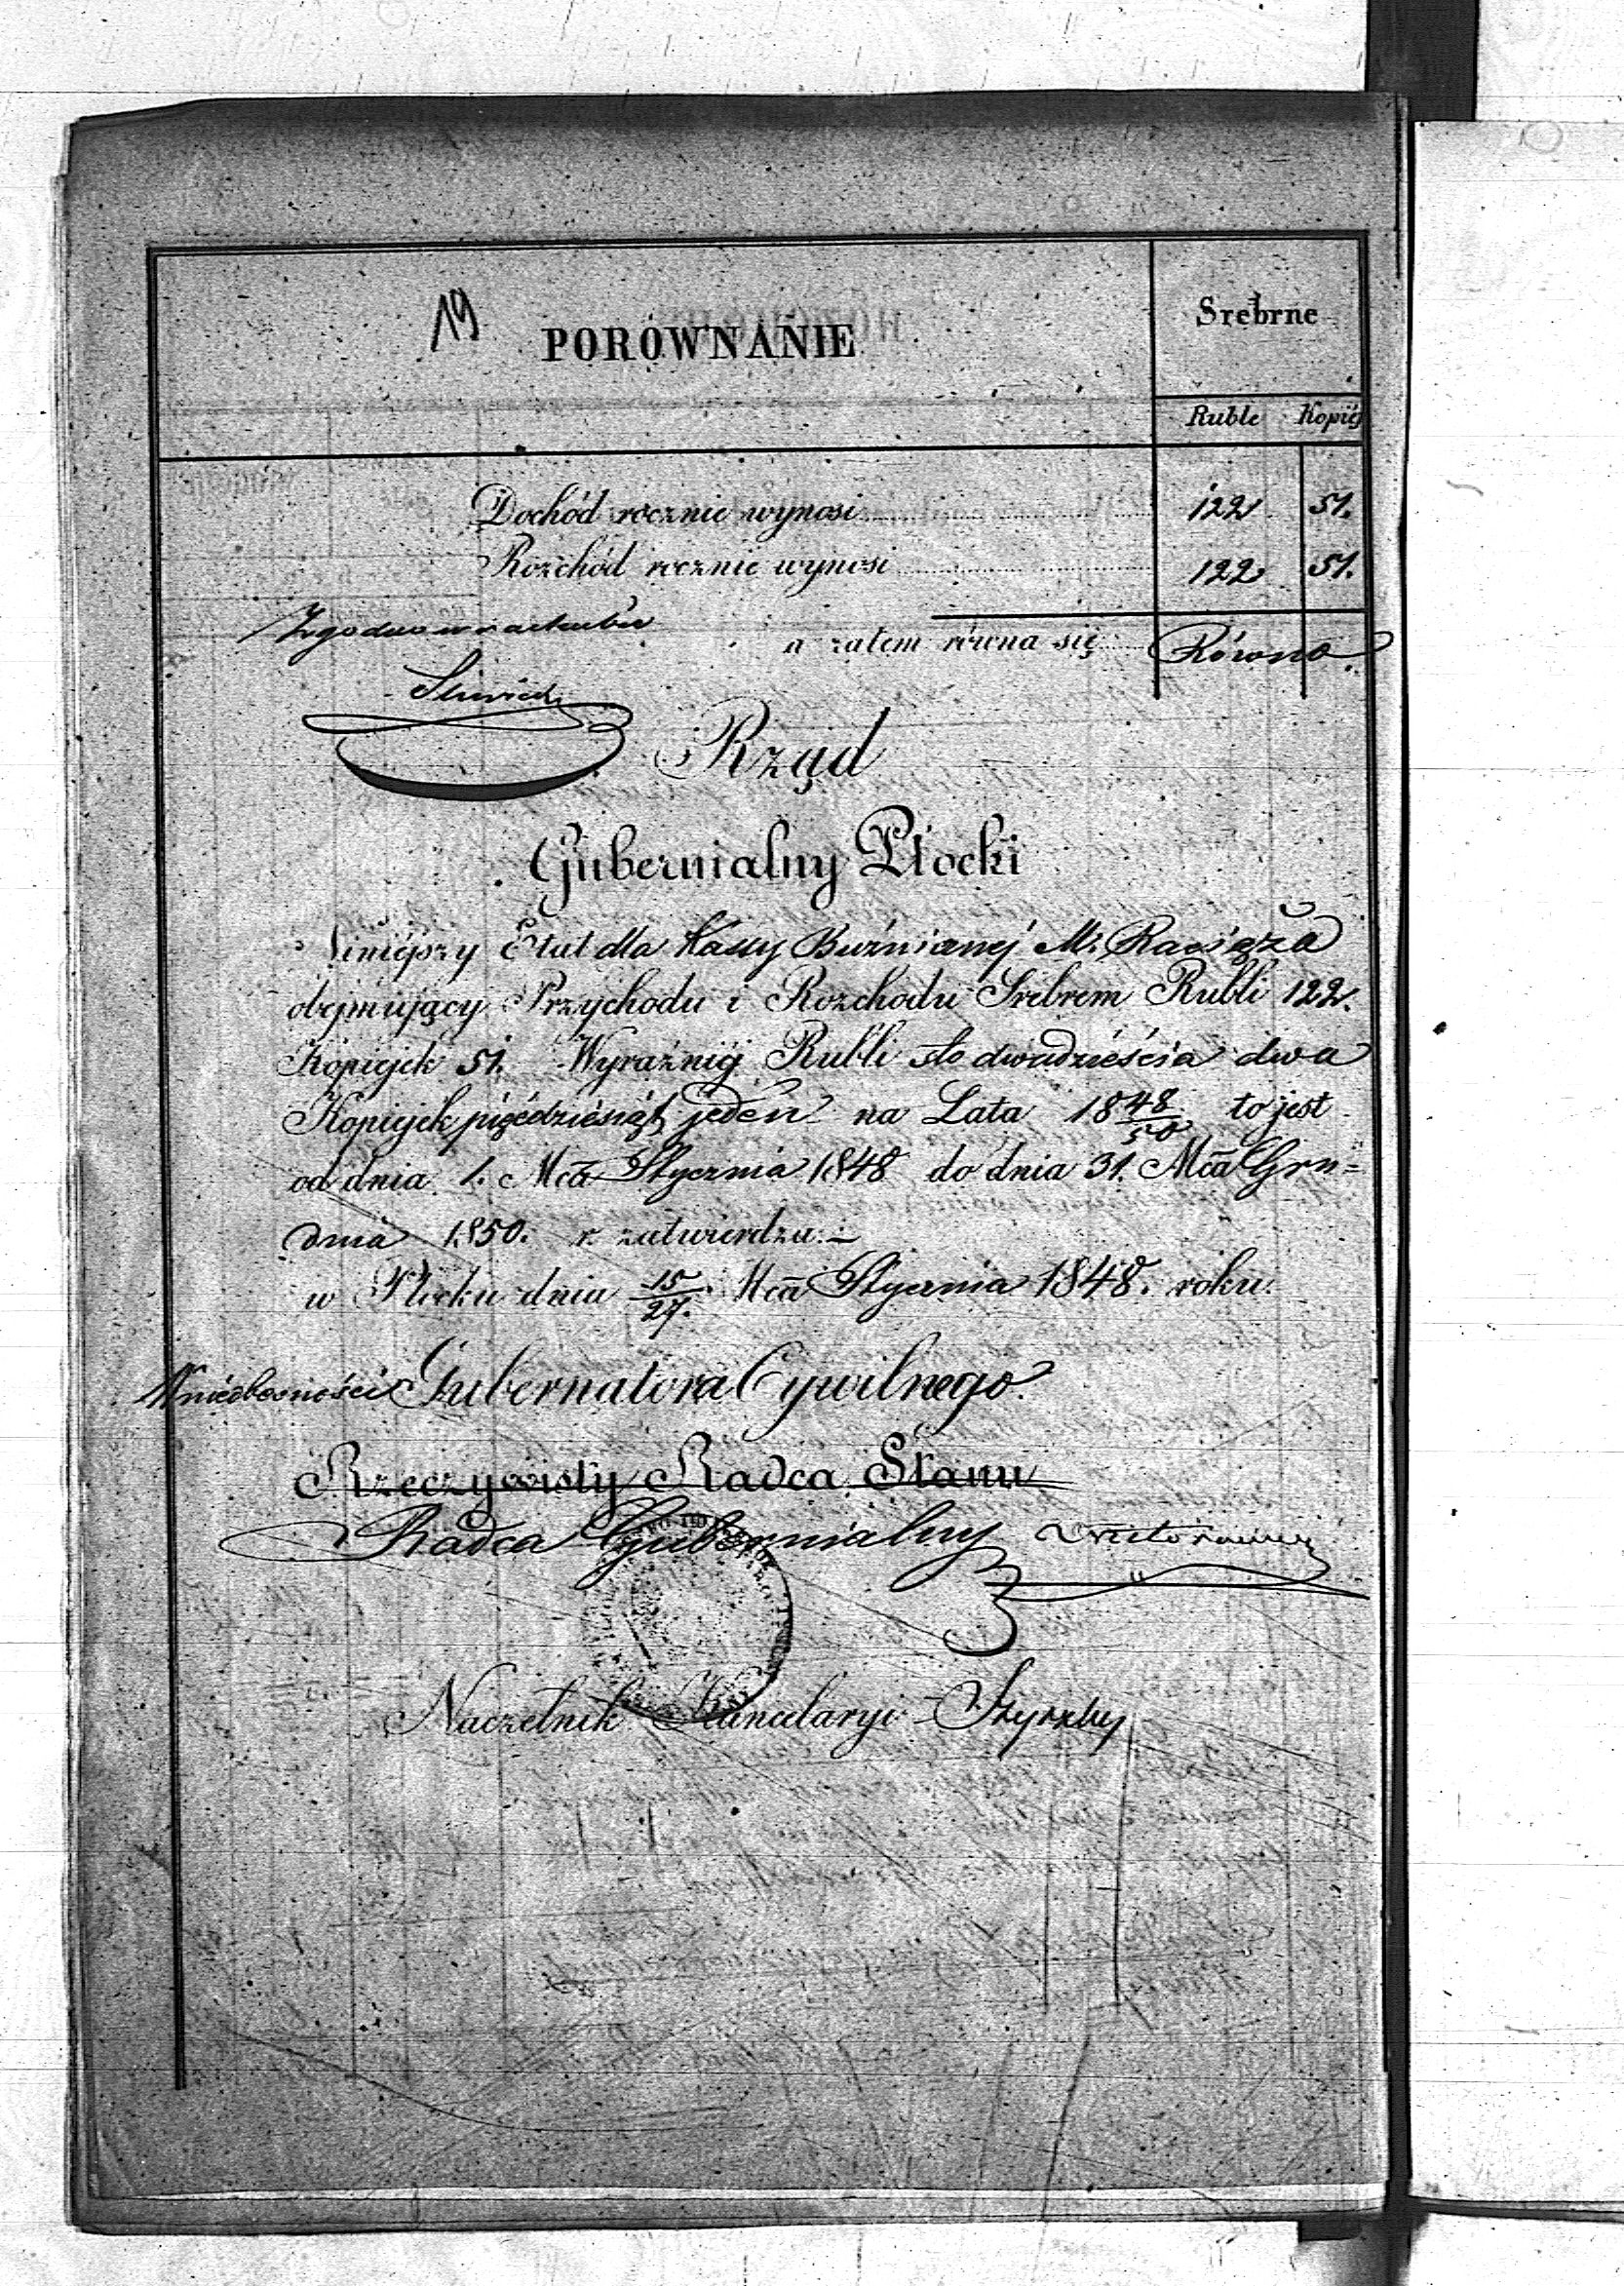 19
PORÓWNANIE
Srebrne
Ruble Kopiéj
Dochód rocznie wynosi 122 51.
Rozchód rocznie wynosi 122 51.
Zgodno w rachubie
a zatem równa się Równo.
Rząd
Gubernialny Płocki
Niniejszy Etat dla Kassy Bużnicznej M. Raciąża
obejmujący Przychodu i Rozchodu Srebrem Rubli 122.
Kopiejek 51. Wyraźniej Rubli sto dwadzieścia dwa
Kopiejek pięćdziesiąt jeden na Lata 1848/50 to jest
od dnia 1. Mca Stycznia 1848 do dnia 31. Mca Gru=
dnia 1850. r. zatwierdza.
w Płocku dnia 15/27. Mca Stycznia 1848. roku.
W nieobecności Gubernatora Cywilnego.
Rzeczywisty Radca Stanu
Radca Gubernialny
Naczelnik Kancelaryi